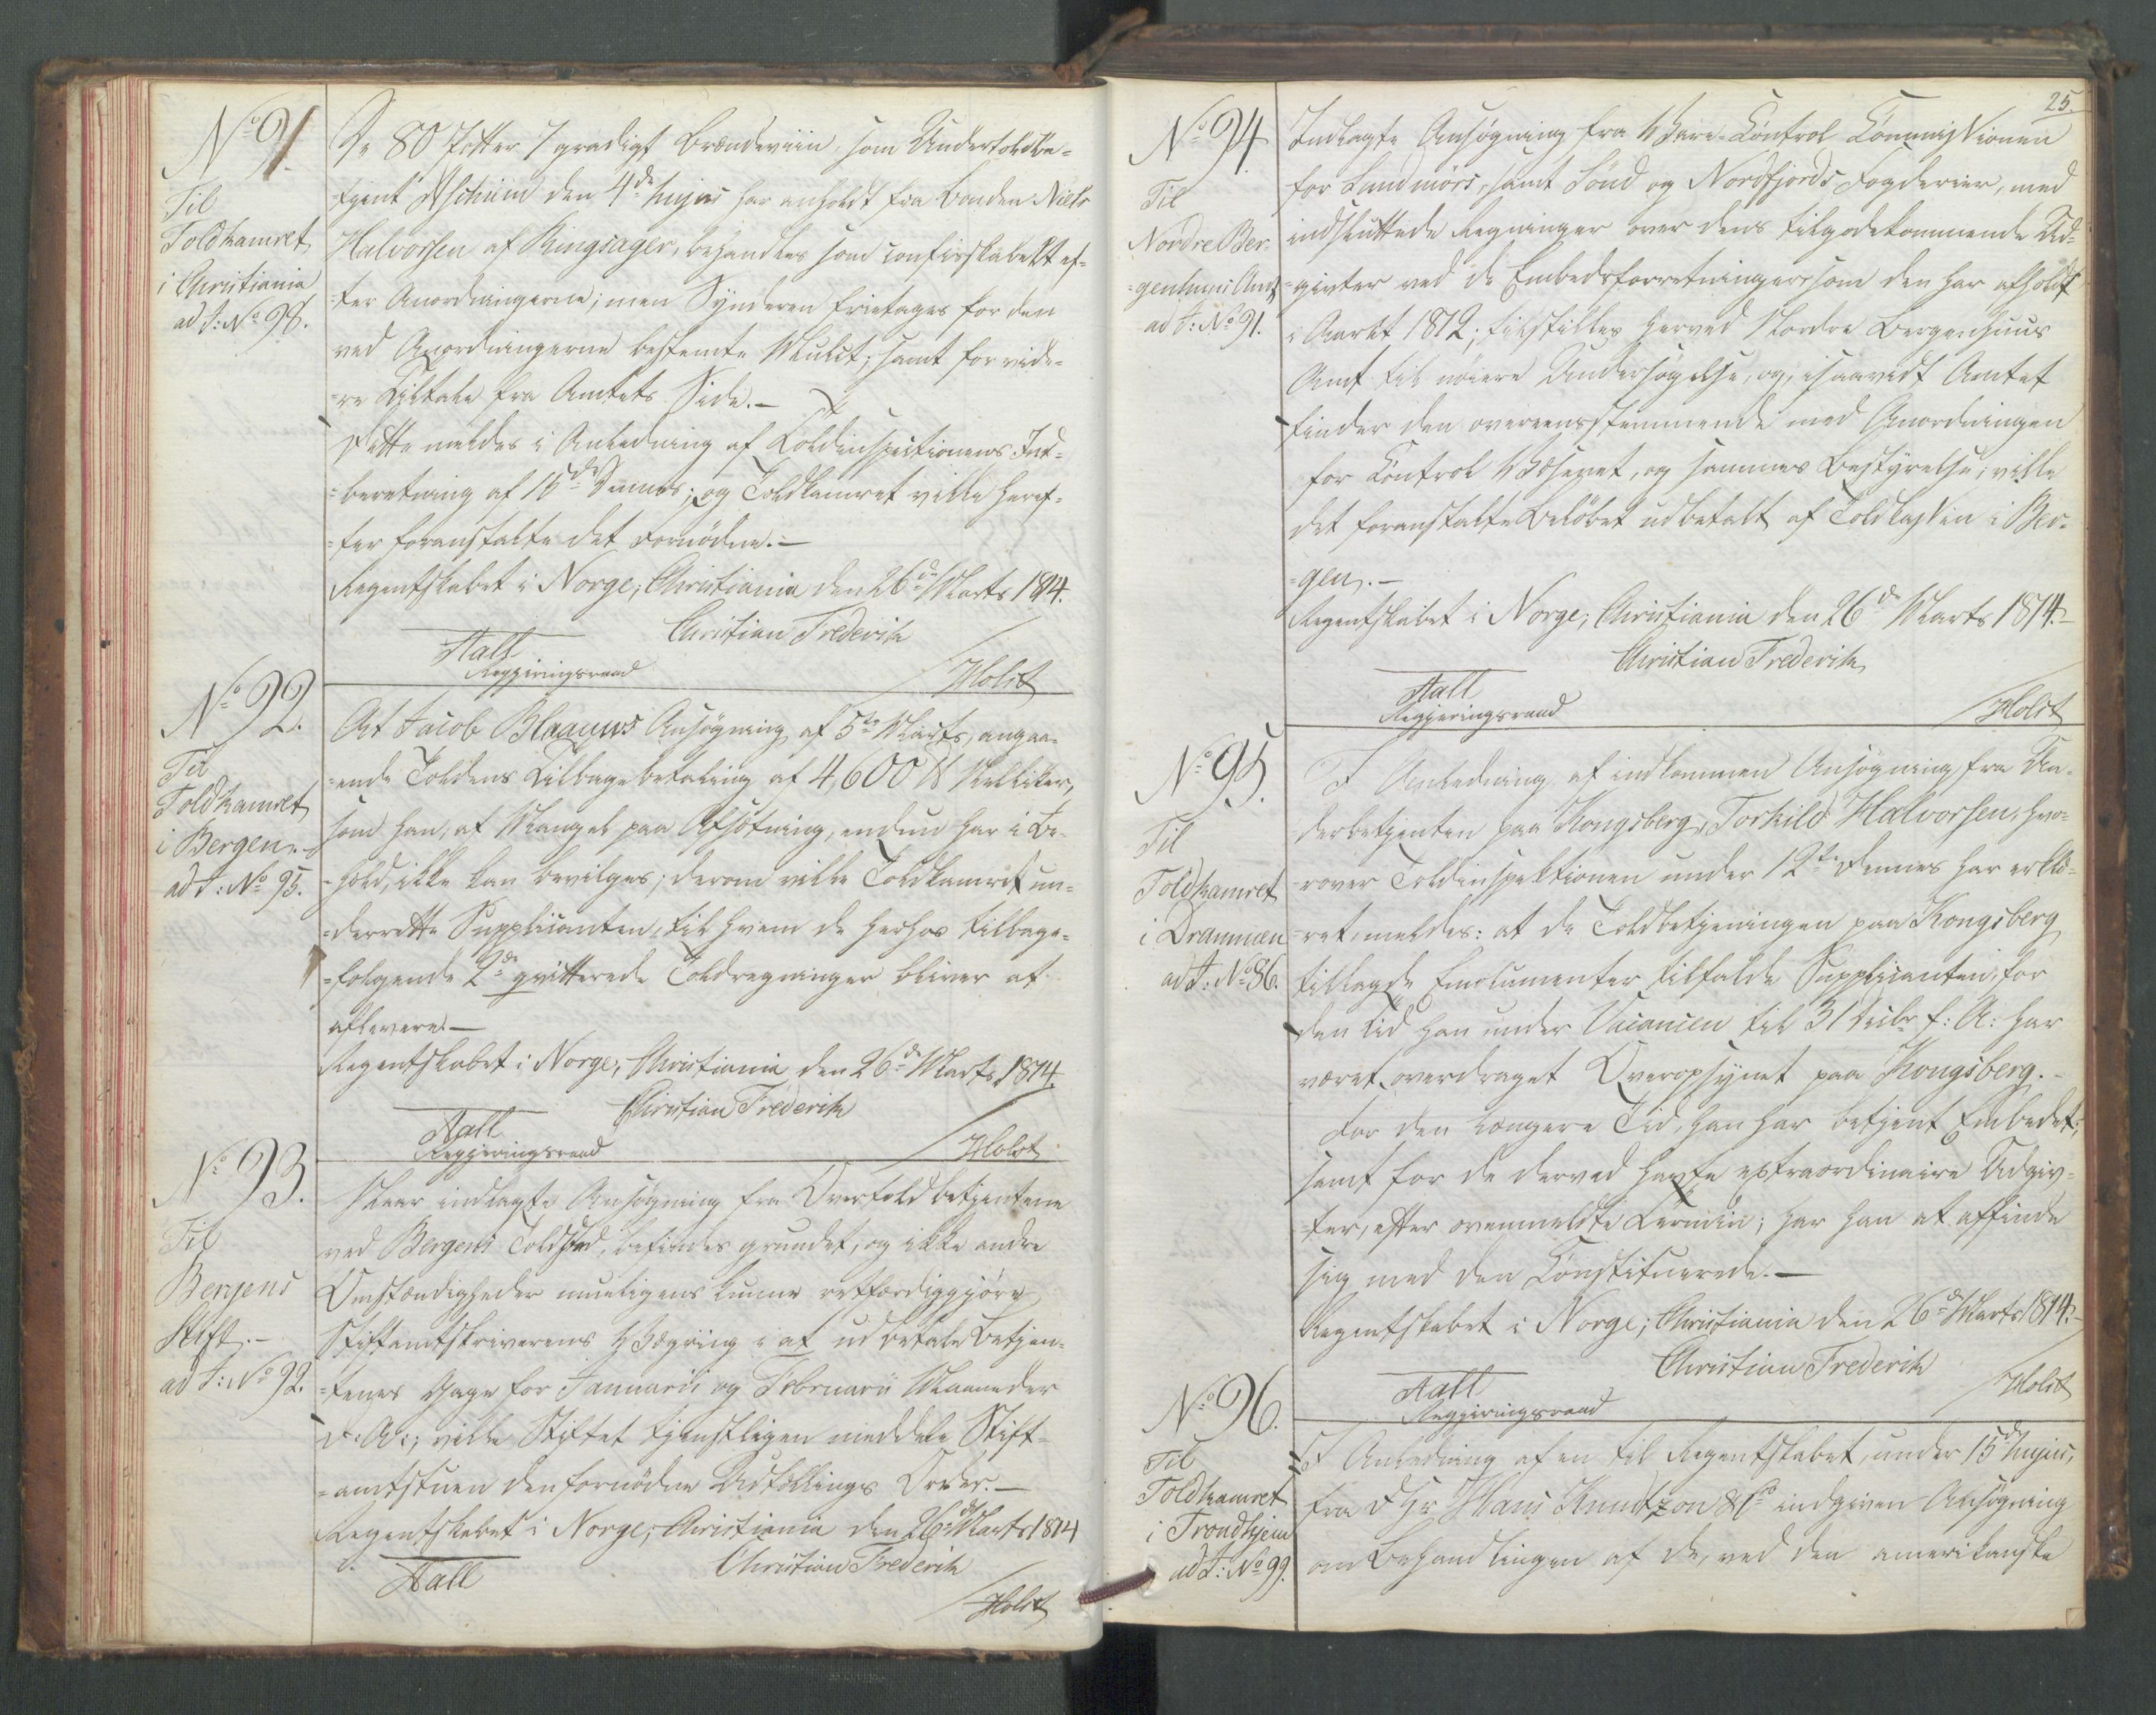 No 91.
Til
Toldkamret
i Christiania
ad J: No 98.
De 80 Potter 7 gradigt Brændeviin, som Undertoldbe-
tjent Aschim den 4de hujus har anholdt fra Bonden Niels
Halvorsen af Ringsager, behandles som confiskabelt ef-
ter Anordningerne; men Synderen fritages for den
ved Anordningerne bestemte Mulct; samt for vide-
re Tiltale fra Amtets Side.-
Dette meldes i Anledning af Toldinspectionens Ind-
beretning af 15de Dennes; og Toldkamret ville heref-
ter foranstalte det Fornödne.-
Regentskabet i Norge; Christiania den 26de Marts 1814.
Christian Frederik
Aall
Regjeringsraad
/Holst
No 92.
Til
Toldkamret
i Bergen.-
ad J: No 95.
At Jacob Blaauws Ansögning af 5te Marts, angaa-
ende Toldens Tilbagebetaling af 4,600 ℔ Nelliker,
som han, af Mangel paa Afsætning, endnu har i Be-
hold, ikke kan bevilges; derom ville Toldkamret un-
derrette Supplicanten, til hvem de herhos tilbage-
fölgende 2de qvitterede Toldregninger bliver at
aflevere.-
Regentskabet i Norge; Christiania den 26de Marts 1814.
Christian Frederik
Aall
Regjeringsraad
/Holst
No 93.
Til
Bergens
Stift.-
ad J: No 92.
Naar indlagte Ansögning fra Overtoldbetjentene
ved Bergens Toldsted, befindes grundet, og ikke andre
Omstændigheder mueligens kunne retfærdiggjöre
Stiftamtskriverens Vægring i at udbetale Betjen-
tenes Gage for Januarii og Februarii Maaneder
d: A:; ville Stiftet tjenstligen meddele Stift-
amtstuen den fornödne Udtællings Order.-
Regentskabet i Norge; Christiania den 26de Marts 1814
Christian Frederik
Aall
/Holst
25.
No 94.
Til
Nordre Ber-
genhuus Amt
ad J: No 91.
Indlagte Ansögning fra Vare-Control Commissionen
for Sundmörs, samt Sönd og Nordfjords Fogderier, med
indsluttede Regninger over dens tilgodekommende Ud-
givter ved de Embedsforretninger som den har afholdt
i Aaret 1812, tilstilles herved Nordre Bergenhuus
Amt til nöiere Undersögelse, og, isaavidt Amtet
finder den overeensstemmende med Anordningen
for Control Væsenet, og sammes Bestyrelse, ville
det foranstalte Belöbet udbetalt af Toldkassen i Ber-
gen.-
Regentskabet i Norge; Christiania den 26de Marts 1814.-
Christian Frederik
Aall
Regjeringsraad
/Holst
No 95.
Til
Toldkamret
i Drammen
ad J: No 86.
I Anledning af indkommen Ansögning fra Un-
derbetjenten paa Kongsberg, Torkild Halvorsen, hvo-
rover Toldinspektionen under 12te Dennes har erklæ-
ret, meldes: at de Toldbetjeningen paa Kongsberg
tillagde Emolumenter tilfalde Supplicanten, for
den Tid han under Vacancen til 31 Decbr f: A: har
været overdraget Overopsynet paa Kongsberg.-
For den længere Tid, han har betjent Embedet;
samt for de derved havte extraordinaire Udgiv-
ter, efter ovenmeldte Termin; har han at affinde
sig med den Constituerede.-
Regentskabet i Norge; Christiania den 26de Marts 1814.-
Christian Frederik
Aall
Regjeringsraad
/Holst
No 96.
Til
Toldkamret
i Trondhjem
ad J: No 99.
I Anledning af en til Regentskabet, under 15de hujus,
fra DHr Hans Knudtzon & Co indgiven Ansögning
om Behandlingen af de, ved den amerikanske